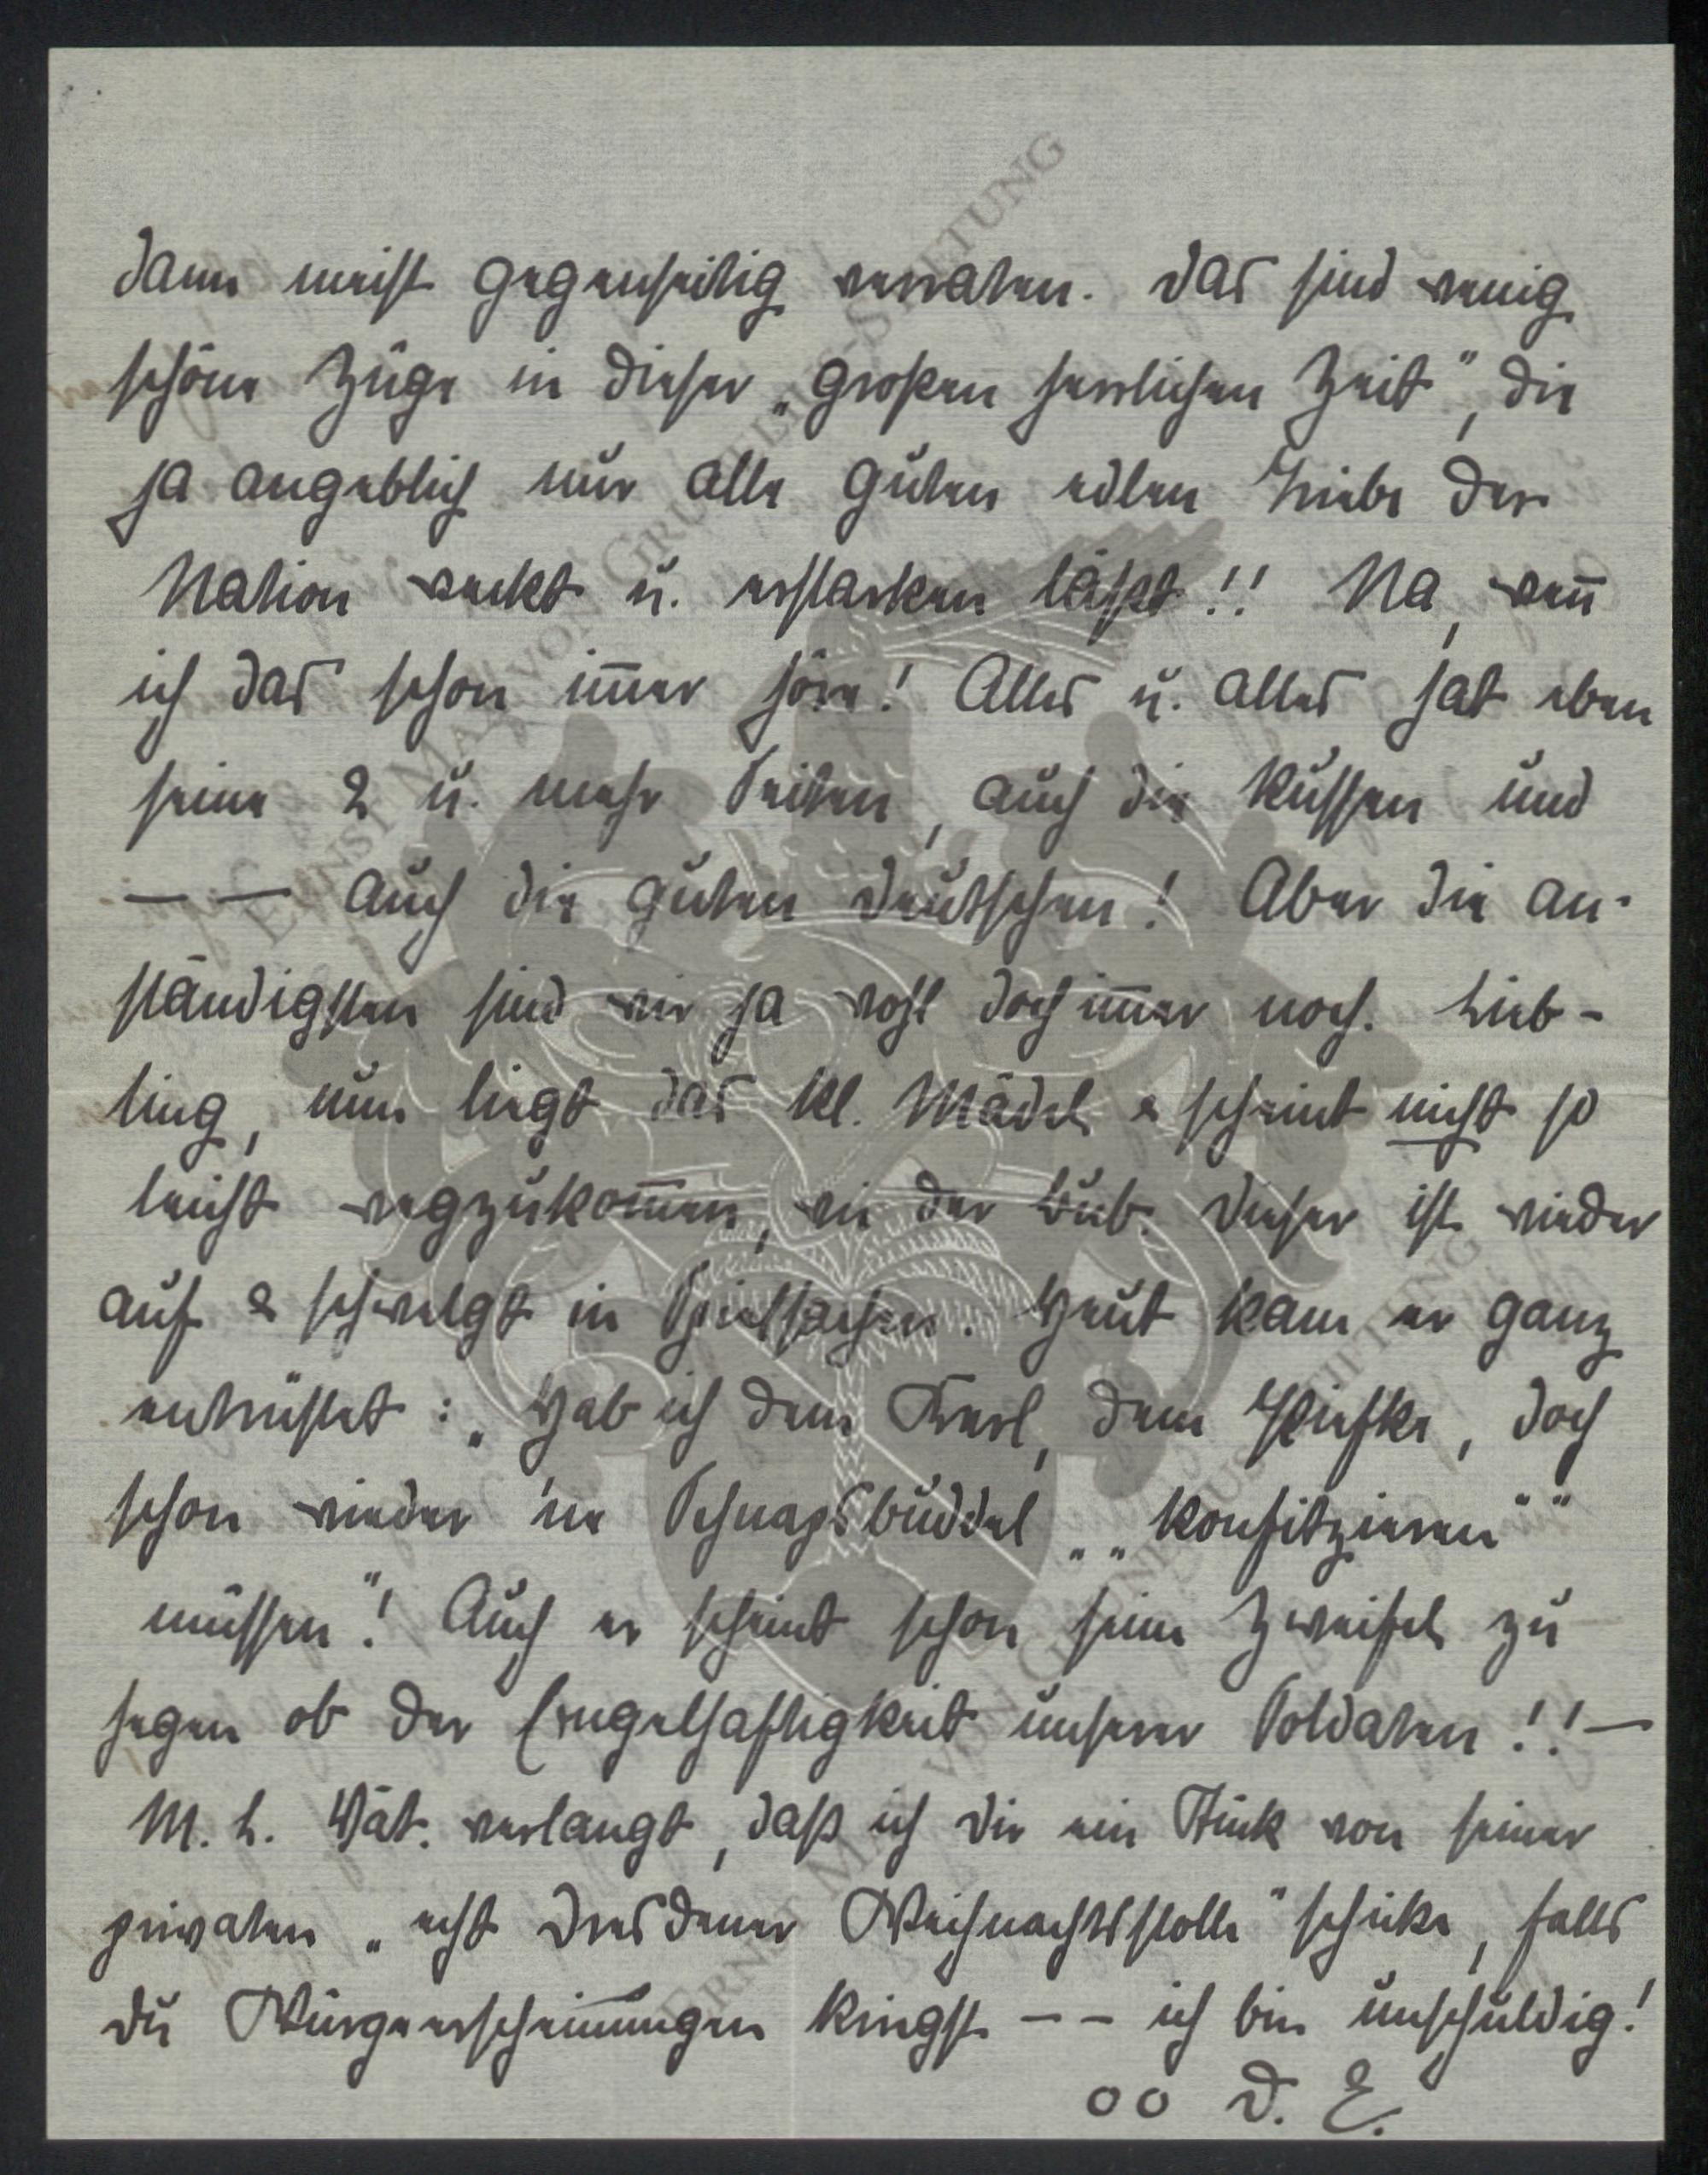 dann meist gegenseitig verraten. Das sind wenig
schöne Züge in dieser „großen herrlichen Zeit", die
ja angeblich nur alle guten edlen Triebe der
Nation weckt u. erstarken läßt!! Na, wen̄
ich das schon im̄er höre! Alles u. alles hat eben
seine 2 u. mehr Seiten, auch die Russen und
– – auch die guten Deutschen! Aber die an-
ständigsten sind wir ja wohl doch im̄er noch. Lieb-
ling, nun liegt das kl. Mädel & scheint nicht so
leicht wegzukom̄en, wie der Bub. Dieser ist wieder
auf & schwelgt in Spielsachen. Heut kam er ganz
entrüstet: „Hab ich dem Kerl, dem Piefke, doch
schon wieder 'ne Schnapsbuddel „„konfitzieren""
müssen"! Auch er scheint schon seine Zweifel zu
hegen ob der Engelhaftigkeit unserer Soldaten!! –
M. L. Vät. verlangt, daß ich Dir ein Stück von seiner
privaten „echt Dresdener Weihnachtsstolle" schicke, falls
Du Würgerscheinungen kriegst – – ich bin unschuldig!
oo D. E.
ERNST MAX VON GRUNELIUS-STIFTUNG
ERNST MAX VON GRUNELIUS-STIFTUNG